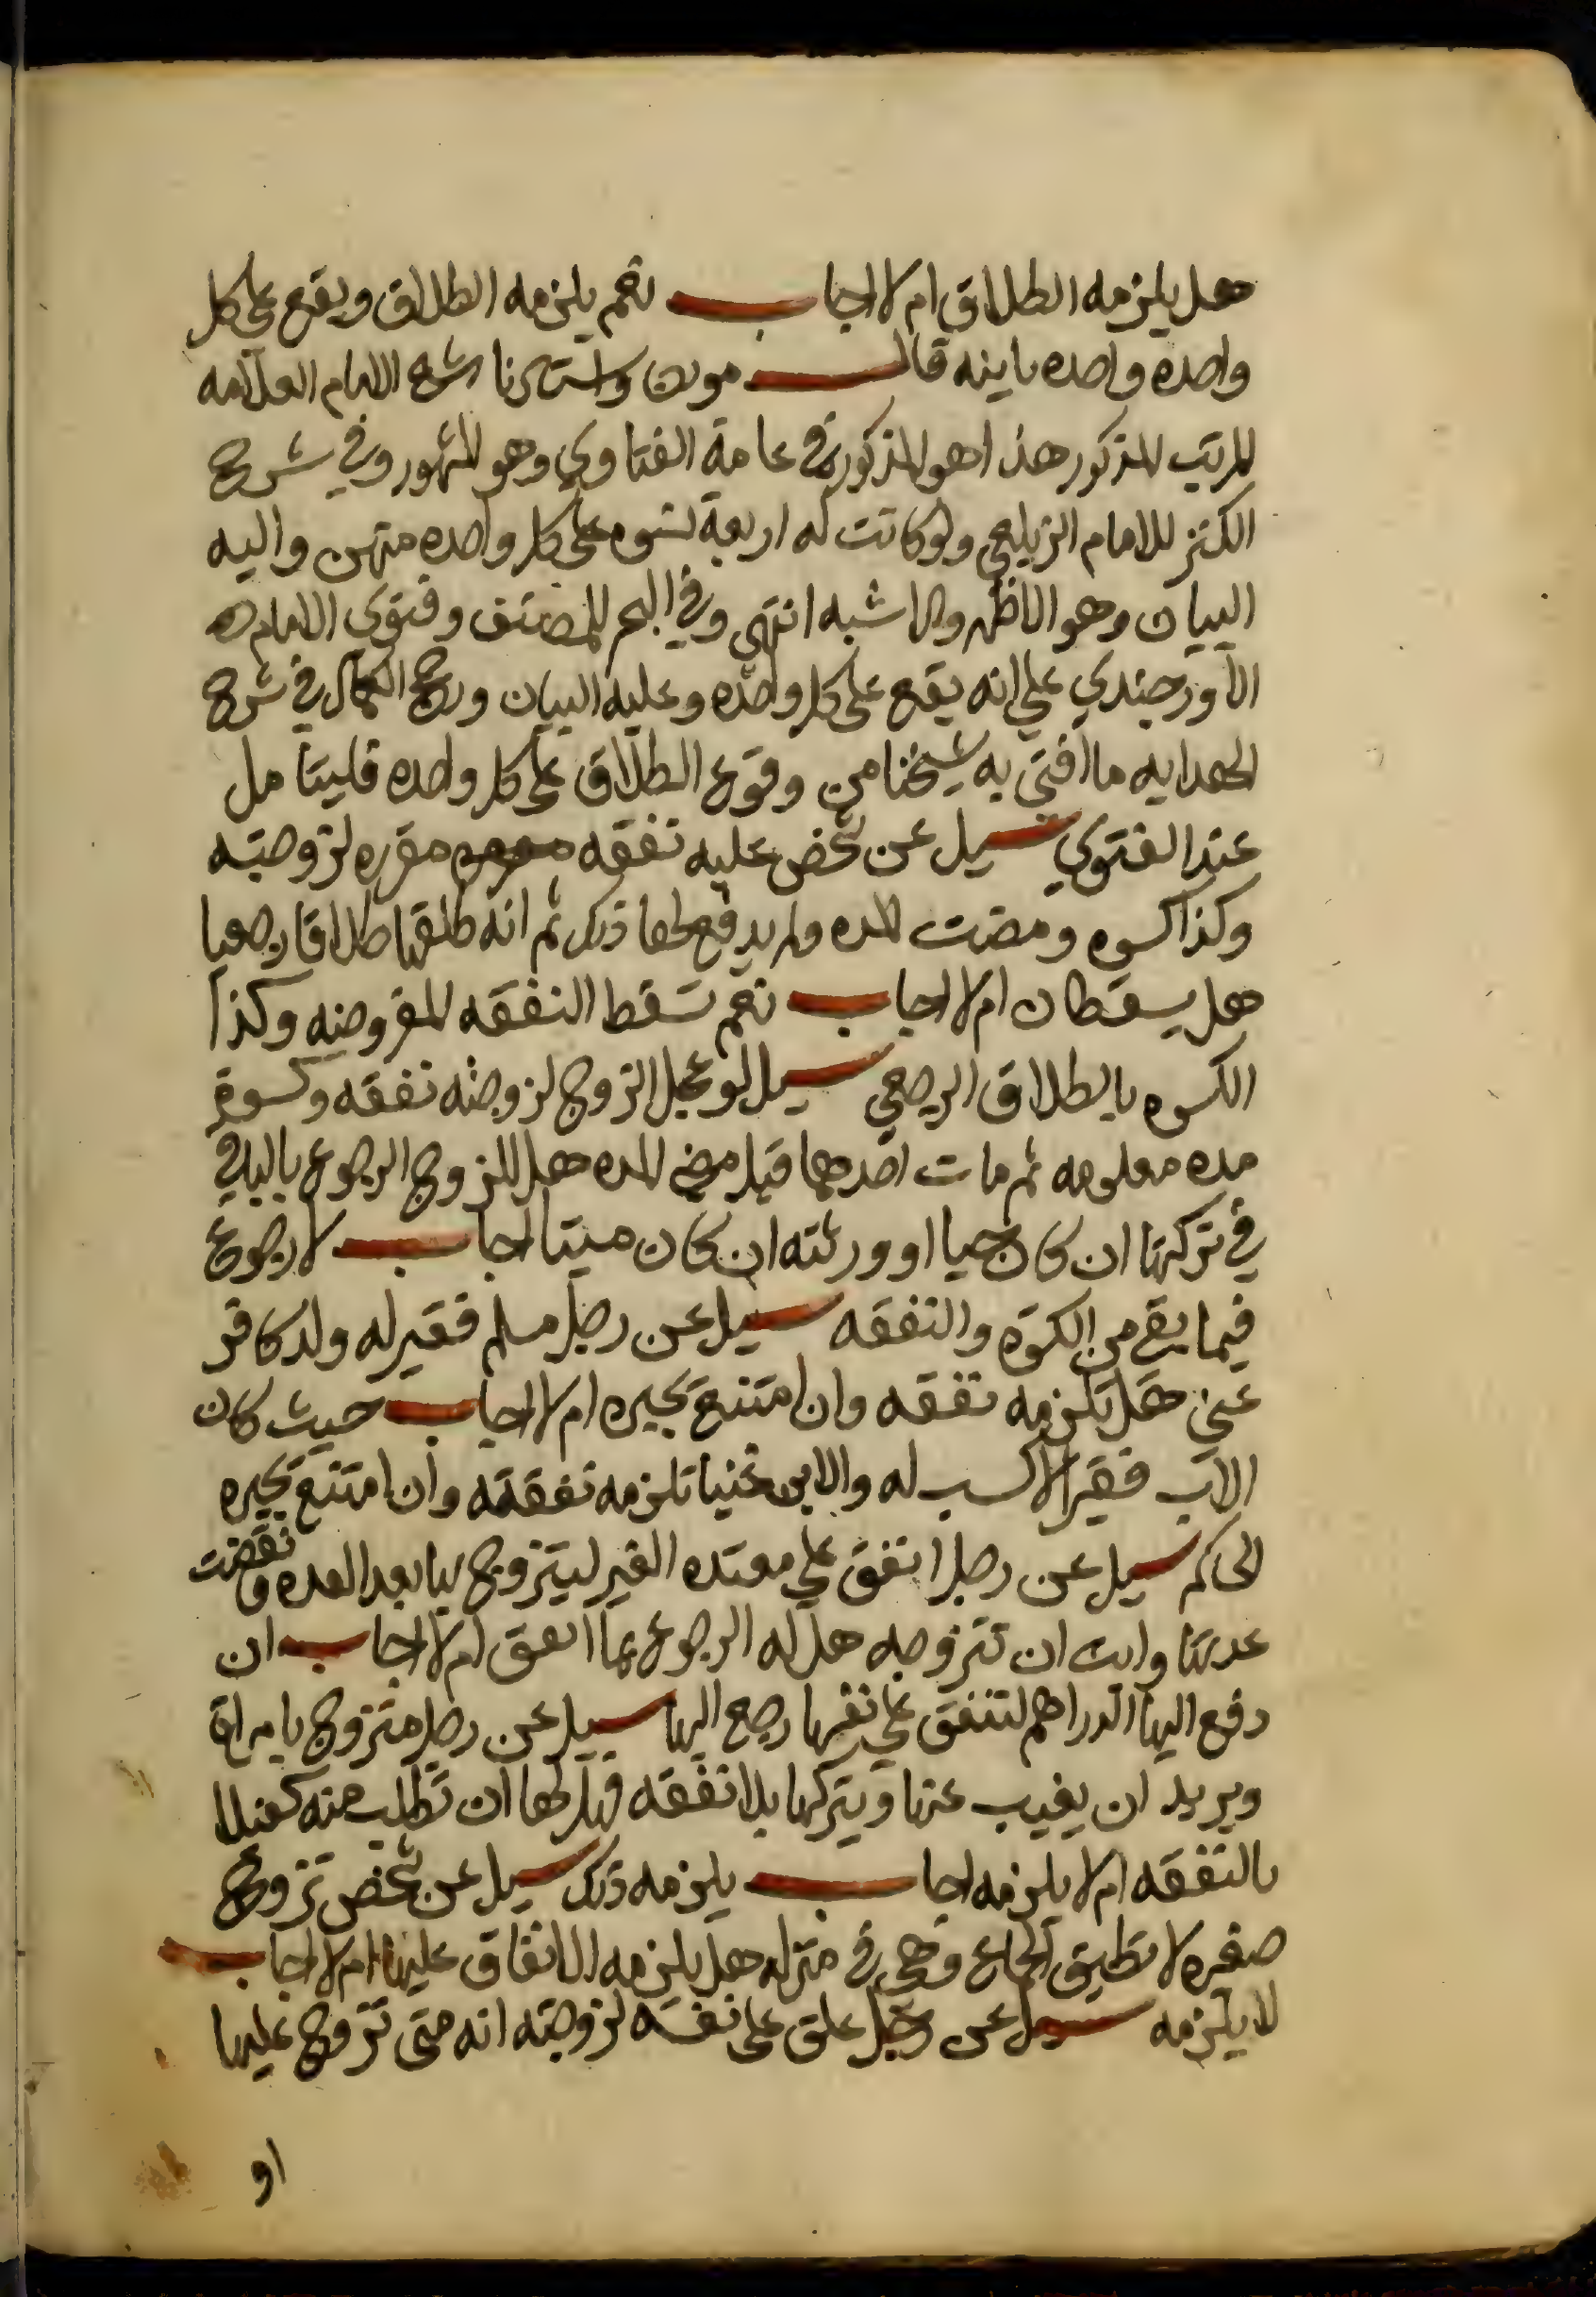 هل يلزمه الطلاق ام لا اجاب نعم يلزمه الطلاق ويقع على كل
واحده واحده باينه قال مولانا واستاذنا شيخ الاسلام العلامه
المرتب المذكور هذا هو المذكور في عامة الفتاوي وهو المشهور وفي شرح
الكنز للامام الزيلعي ولو كانت له اربعة نسوه على كل واحده منهن واليه
البيان وهو الاظهر والاشبه انتهى وفي البحر للمصنف وفتوى الامام
الاوزجندي علي انه يقع على كل واحده وعليه البيان ورجح الكمال في شرح
الهدايه ما افتى به شيخنا من وقوع الطلاق على كل واحده فليتامل
عند الفتوي سيل عن شخص عليه نفقه مقرره لزوجته
وكذا كسوه ومضت المده ولم يدفع لها ذلك ثم انه طلقها طلاقا رجعيا
هل يسقطان ام لا اجاب نعم تسقط النفقه المفروضه وكذا
الكسوه بالطلاق الرجعي سيل لو عجل الزوج لزوجته نفقه وكسوة
مده معلومه ثم مات احدهما قبل مضي المده هل للزوج الرجوع بالباقي
في تركتها ان كان حيا او ورثته ان كان ميتا اجاب لا رجوع
فيما بقي من الكسوه والنفقه سيل عن رجل مسلم فقير له ولد كافر
غني هل تلزمه نفقه وان امتنع يجبره ام لا اجاب حيث كان
الاب فقيرا لا كسب له والابن غنيا تلزمه نفقته وان امتنع يجبره
الحاكم سيل عن رجل انفق علي معتده الغير ليتزوج بها بعد العده وانقضت
عدتها وابت ان تتزوجه هل له الرجوع بما انفق ام لا اجاب ان
دفع اليها الدراهم لتنفق علي نفسها رجع اليها سيل عن رجل متزوج بامراة
ويريد ان يغيب عنها ويتركها بلا نفقه فهل لها ان تطلب منه كفيلا
بالنفقه ام لا يلزمه اجاب يلزمه ذلك سيل عن شخص تزوج
صغيره لا تطيق الجماع وهي في منزله هل يلزمه الانفاق عليها ام لا اجاب
لا يلزمه سيل عن رجل علق على نفسه لزوجته انه متى تزوج عليها
او